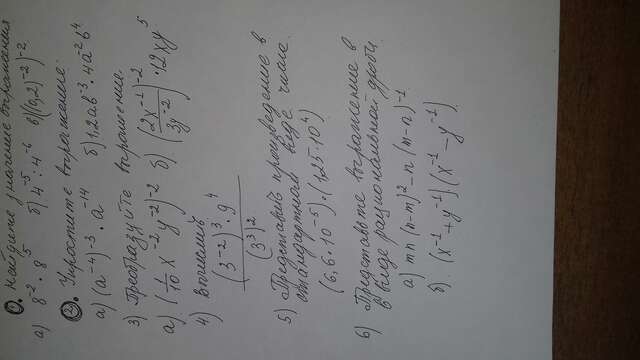 1. Найдите значение выражения
а) 8⁻² · 8⁵ б) 4⁻⁵ : 4⁻⁶ в) ((0,2)⁻²)⁻²
2. Упростите выражение.
а) (a⁻⁴)⁻³ · a⁻¹⁴ б) 1,2ab⁻³ · 4a⁻²b⁴
3) Преобразуйте выражение.
а) (1/10 x⁻² y⁻²)⁻² б) (2x⁻¹/3y⁻²)⁻² · 12xy⁵
4) Вычислить
(3⁻²)³ · 9⁴
(3³)²
5) Представить произведение в
стандартном виде числа.
(6,6·10⁻⁵)·(1,25·10⁴)
6) Представьте выражение в
в виде рациональной дроби
а) mn (n-m)² - n (m-n)⁻¹
б) (x⁻¹ + y⁻¹)(x⁻¹ - y⁻¹)